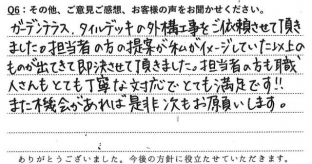 Q6：その他、ご意見ご感想、お客様の声をお聞かせください。
ガーデンテラス、タイルデッキの外構工事をご依頼させて頂き
ました。担当者の方の提案が私がイメージしていた以上の
ものが出てきて即決させて頂きました。担当者の方も職
人さんもとても丁寧な対応でとても満足です!!
また機会があれば是非次もお願いします。
ありがとうございました。今後の方針に役立たせていただきます。